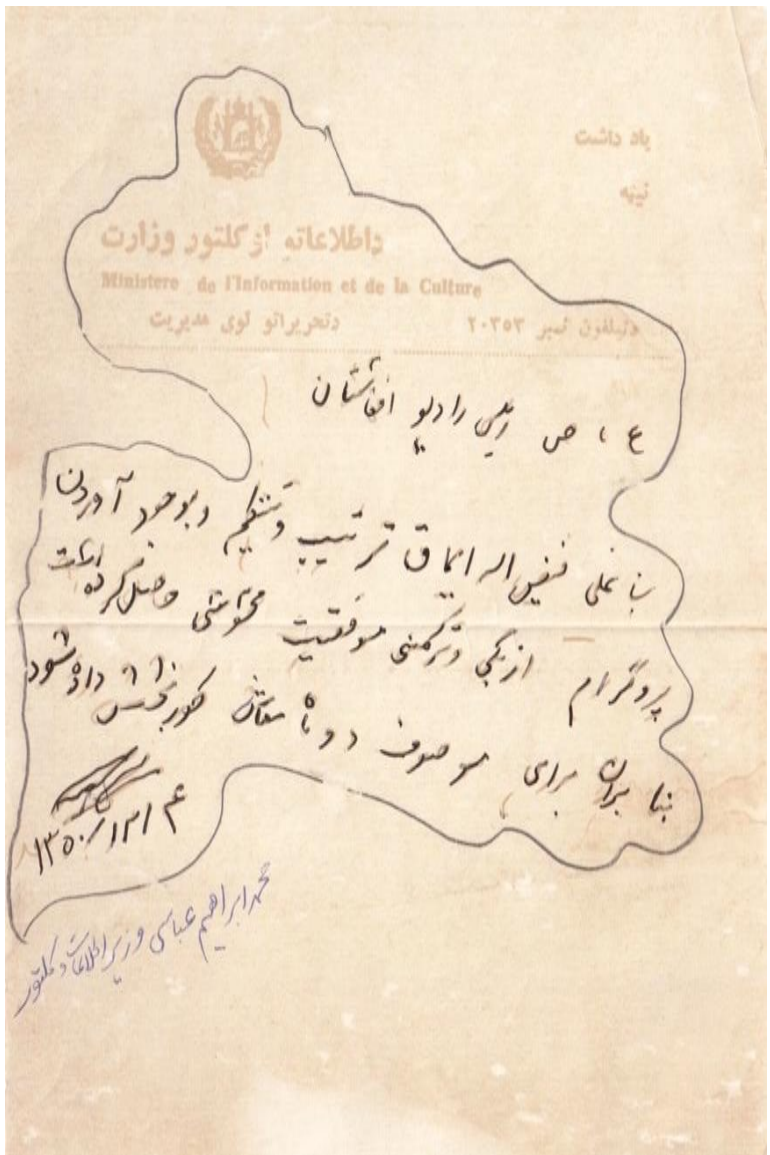 یاد داشت
نېټه
داطلاعاتو اوکلتور وزارت
Ministere de l'Information et de la Culture
دتحریراتو لوی مدیریت
دتیلفون نمبر ۲۰۳۵۳
ع ، ص رئیس رادیو افغانستان
ښاغلی فیض اله ایماق ترتیب وتنظیم وبوجود آوردن
پروگرام ازبکی وترکمنی موفقیت خوشی حاصل کرده است
بنا بران برای موصوف دو ماه معاش طور بخشش داده شود
۱۳۵۰
محمد ابراهیم عباسی وزیر اطلاعات وکلتور